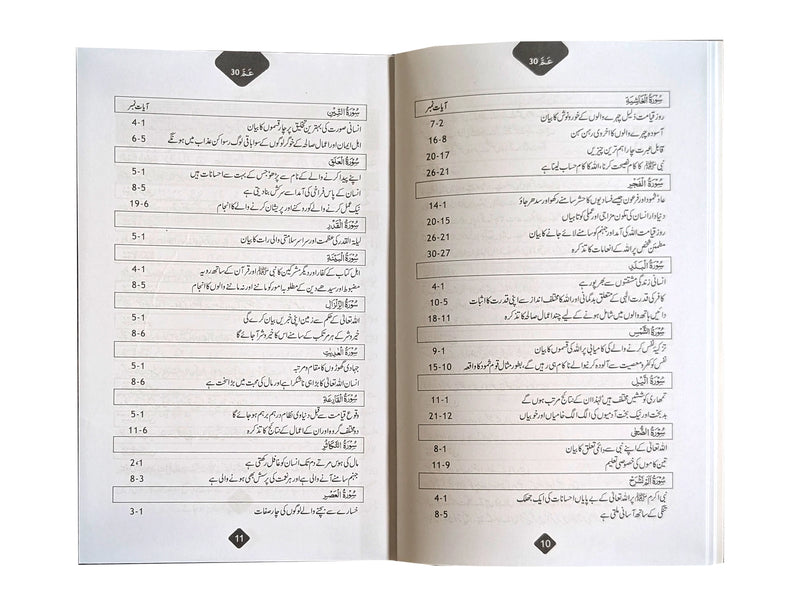 عَمَّ 30
سُوْرَةُ الْغَاشِيَةِ
آیات نمبر
روز قیامت ذلیل چہرے والوں کے خور و نوش کا بیان
7-2
آسودہ چہرے والوں کا اخروی رہن سہن
16-8
قابل عبرت چار اہم ترین چیزیں
20-17
نبی ﷺ کا کام نصیحت کرنا، اللہ کا کام حساب لینا ہے
26-21
سُوْرَةُ الْفَجْرِ
عاد ثمود اور فرعون جیسے فسادیوں کا حشر سامنے رکھو اور سدھر جاؤ
14-1
دنیا دار انسان کی تکون مزاجی اور عملی کوتاہیاں
20-15
روز قیامت اللہ کی آمد اور جہنم کو سامنے لائے جانے کا بیان
26-21
مطمئن شخص پر اللہ کے انعامات کا تذکرہ
30-27
سُوْرَةُ الْبَلَدِ
انسانی زندگی مشقتوں سے بھرپور ہے
4-1
کافر کی قدرت الٰہی کے متعلق بدگمانی اور اللہ کا مختلف انداز سے اپنی قدرت کا اثبات
10-5
دائیں ہاتھ والوں میں شامل ہونے کے لیے چند اعمال صالحہ کا تذکرہ
18-11
سُوْرَةُ الشَّمْسِ
تزکیۂ نفس کرنے والے کی کامیابی پر اللہ کی قسموں کا بیان
9-1
نفس کو کفر و معصیت سے آلودہ کرنے والے ناکام ہی رہیں گے، بطور مثال قوم ثمود کا واقعہ
15-10
سُوْرَةُ الَّيْلِ
تمہاری کوششیں مختلف ہیں لہٰذا ان کے نتائج مرتب ہوں گے
11-1
بد بخت اور نیک بخت آدمیوں کی الگ الگ خامیاں اور خوبیاں
21-12
سُوْرَةُ الضُّحٰى
اللہ کا اپنے نبی سے دائمی تعلق کا بیان
8-1
تین کاموں کی خصوصی تعلیم
11-9
سُوْرَةُ اَلَمْ نَشْرَحْ
نبی اکرم ﷺ پر اللہ تعالیٰ کے بے پایاں احسانات کی ایک جھلک
4-1
تنگی کے ساتھ آسانی ملتی ہے
8-5
10
عَمَّ 30
سُوْرَةُ التِّيْنِ
آیات نمبر
انسانی صورت کی بہترین تخلیق پر چار قسموں کا بیان
4-1
اہل ایمان اور اعمال صالحہ کے خوگر لوگوں کے سوا باقی لوگ رسوا کن عذاب میں ہونگے
6-5
سُوْرَةُ الْعَلَقِ
اپنے پیدا کرنے والے کے نام سے پڑھو جس کے بہت سے احسانات ہیں
5-1
انسان کے پاس فراخی کی آمد اسے سرکش بنا دیتی ہے
8-5
نیک عمل کرنے والے کو روکنے اور پریشان کرنے والے کا انجام
19-6
سُوْرَةُ الْقَدْرِ
لیلۃ القدر کی عظمت اور سراسر سلامتی والی رات کا بیان
5-1
سُوْرَةُ الْبَيِّنَةِ
اہل کتاب کے کفار اور دیگر مشرکین کا نبی ﷺ اور قرآن کے ساتھ رویہ
4-1
مضبوط اور سیدھے دین کے مطلوبہ امور کو ماننے اور نہ ماننے والوں کا انجام
8-5
سُوْرَةُ الزِّلْزَالِ
اللہ تعالیٰ کے حکم سے زمین اپنی خبریں بیان کرے گی
5-1
خیر و شر کے ہر مرتکب کے سامنے اس کا خیر و شر آ جائے گا
8-6
سُوْرَةُ الْعٰدِيٰتِ
جہادی گھوڑوں کا مقام و مرتبہ
5-1
انسان اللہ تعالیٰ کا بڑا ہی ناشکرا ہے اور مال کی محبت میں بڑا سخت ہے
8-6
سُوْرَةُ الْقَارِعَةِ
وقوع قیامت سے قبل دنیاوی نظام درہم برہم ہو جائے گا
5-1
دو مختلف گروہ اور ان کے اعمال کے نتائج کا تذکرہ
11-6
سُوْرَةُ التَّكَاثُرِ
مال کی ہوس مرتے دم تک انسان کو غافل رکھتی ہے
2،1
جہنم سامنے آنے والی ہے اور ہر نعمت کی پرسش بھی ہونے والی ہے
8-3
سُوْرَةُ الْعَصْرِ
خسارے سے بچنے والے لوگوں کی چار صفات
3-1
11